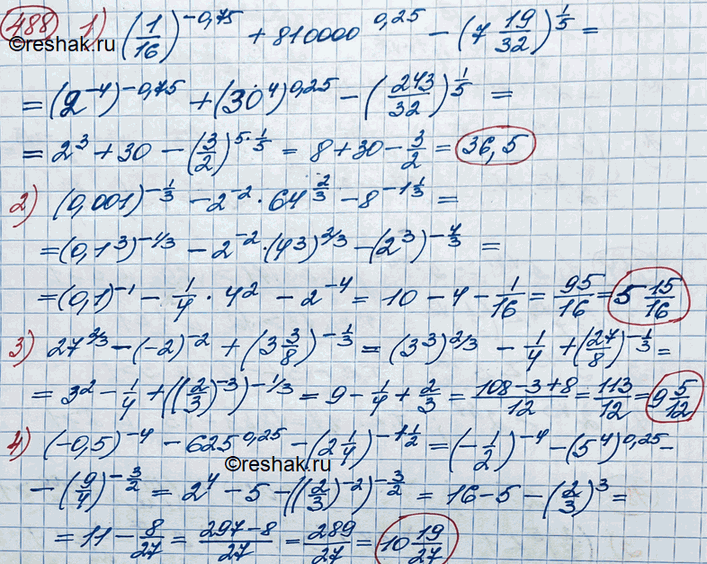 488 1) (1/16)^-0,75 + 810000^0,25 - (7 19/32)^1/5 =
©reshak.ru
= (2^-4)^-0,75 + (30^4)^0,25 - (243/32)^1/5 =
= 2^3 + 30 - (3/2)^5·1/5 = 8 + 30 - 3/2 = 36,5
2) (0,001)^-1/3 - 2^-2 · 64^2/3 - 8^-1 1/3 =
= (0,1^3)^-1/3 - 2^-2 · (4^3)^2/3 - (2^3)^-4/3 =
= (0,1)^-1 - 1/4 · 4^2 - 2^-4 = 10 - 4 - 1/16 = 95/16 = 5 15/16
3) 27^2/3 - (-2)^-2 + (3 3/8)^-1/3 = (3^3)^2/3 - 1/4 + (27/8)^-1/3 =
= 3^2 - 1/4 + ((2/3)^-3)^-1/3 = 9 - 1/4 + 2/3 = 108-3+8/12 = 113/12 = 9 5/12
4) (-0,5)^-4 - 625^0,25 - (2 1/4)^-1 1/2 = (-1/2)^-4 - (5^4)^0,25 -
©reshak.ru
- (9/4)^-3/2 = 2^4 - 5 - ((2/3)^-2)^-3/2 = 16 - 5 - (2/3)^3 =
= 11 - 8/27 = 297-8/27 = 289/27 = 10 19/27